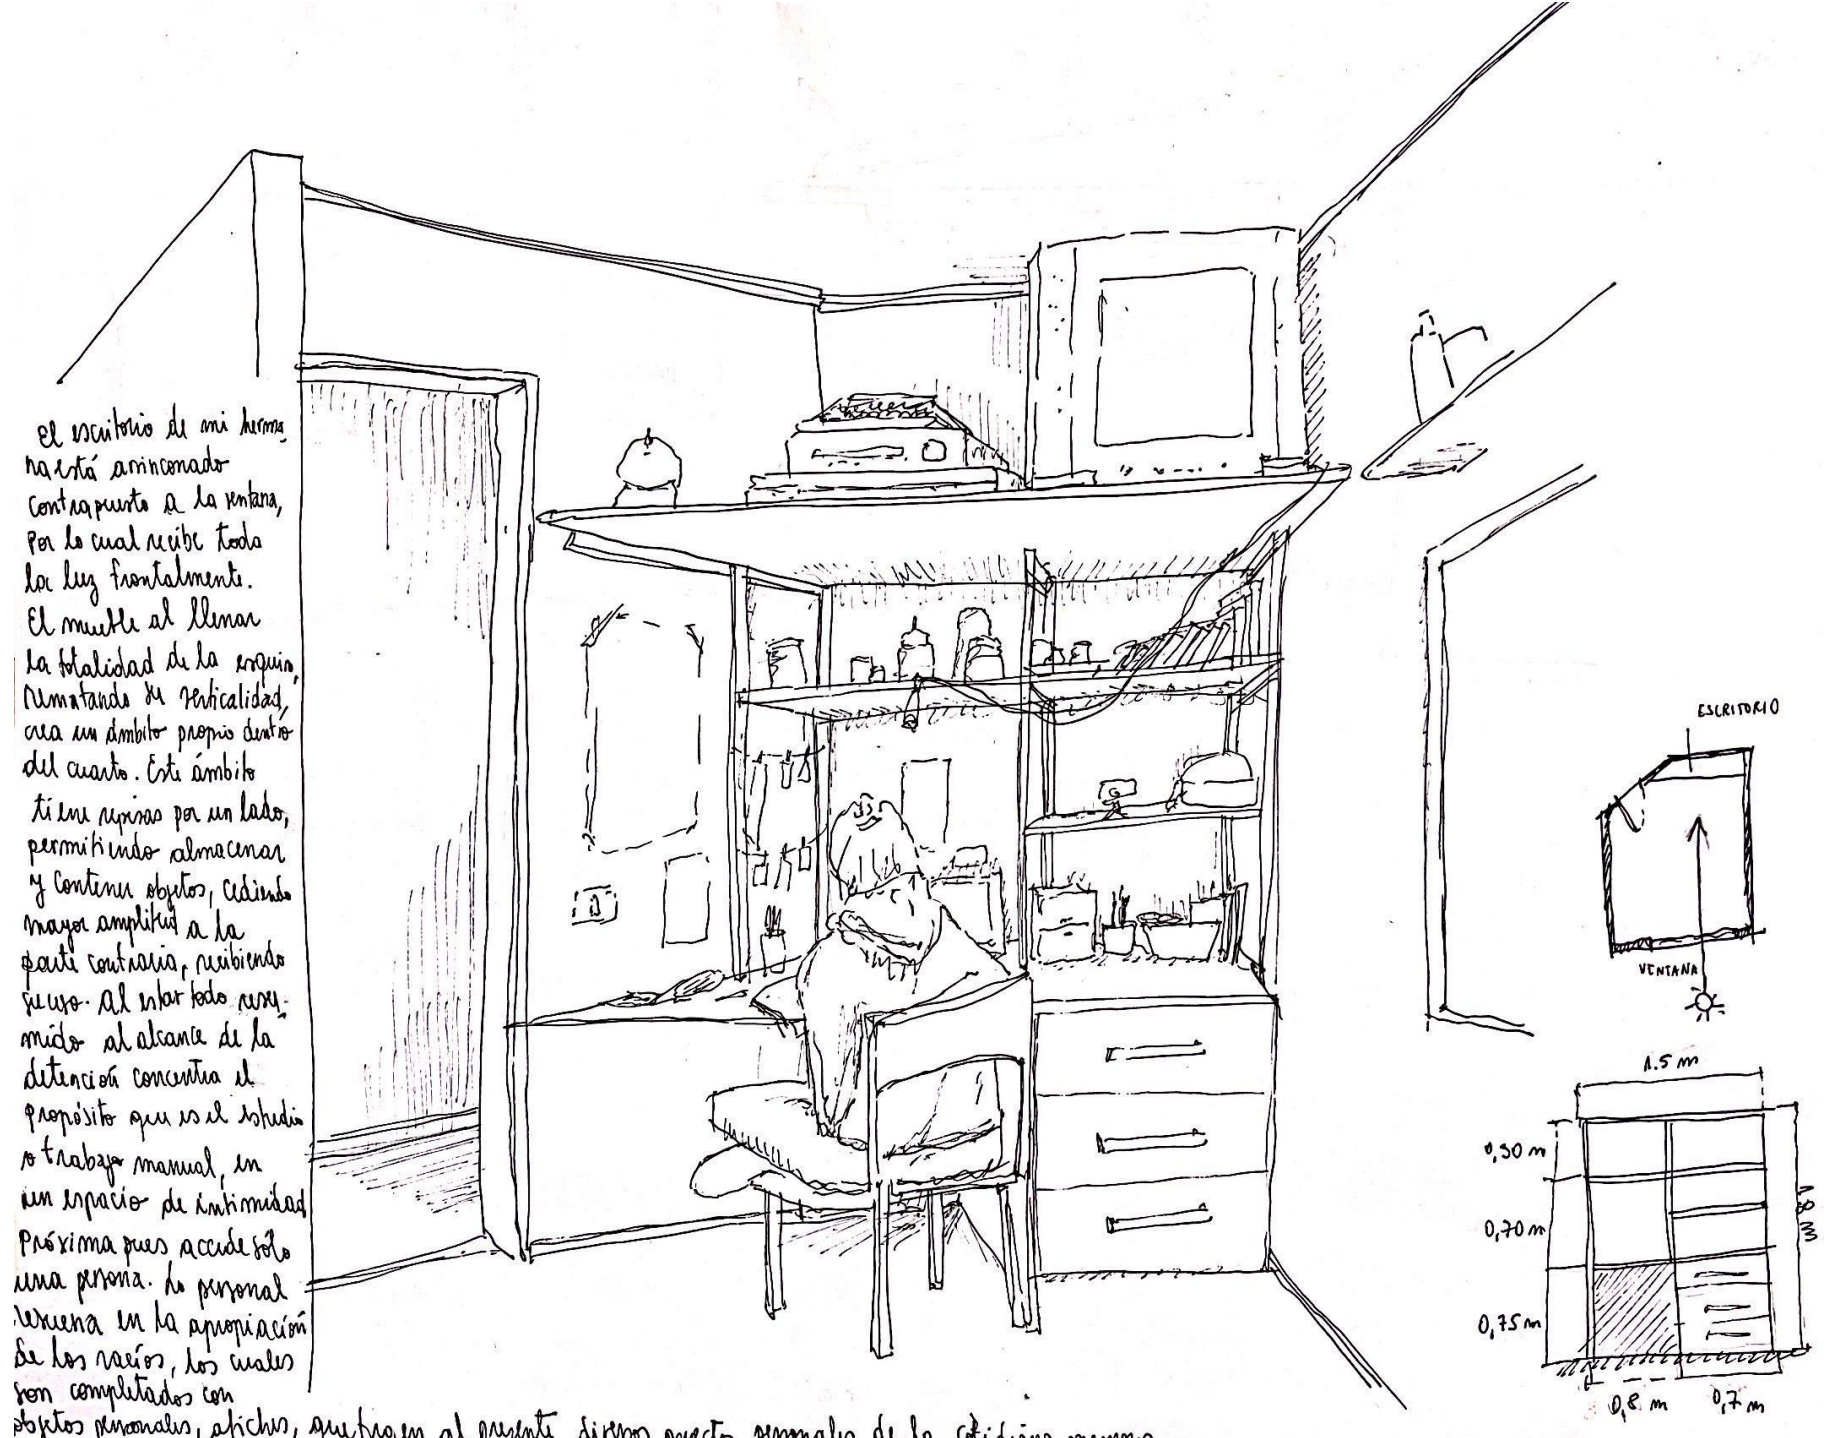 El escritorio de mi herma
na está arrinconado
contrapuesto a la ventana,
por lo cual recibe toda
la luz frontalmente.
El mueble al llenar
la totalidad de la esquina,
rematando su verticalidad,
crea un ámbito propio dentro
del cuarto. Este ámbito
tiene repisas por un lado,
permitiendo almacenar
y contener objetos, cediendo
mayor amplitud a la
parte contraria, recibiendo
su uso. Al estar todo resu-
mido al alcance de la
detención concentra el
propósito que es el estudio
o trabajo manual, en
un espacio de intimidad
próxima pues accede sólo
una persona. Lo personal
resuena en la apropiación
de los vacíos, los cuales
son completados con
objetos personales, afiches, que traen al presente diversos personales de la cotidiana
ESCRITORIO
VENTANA
1.5 m
0,30 m
0,70 m
0,75 m
1,8 m
0,8 m
0,7 m